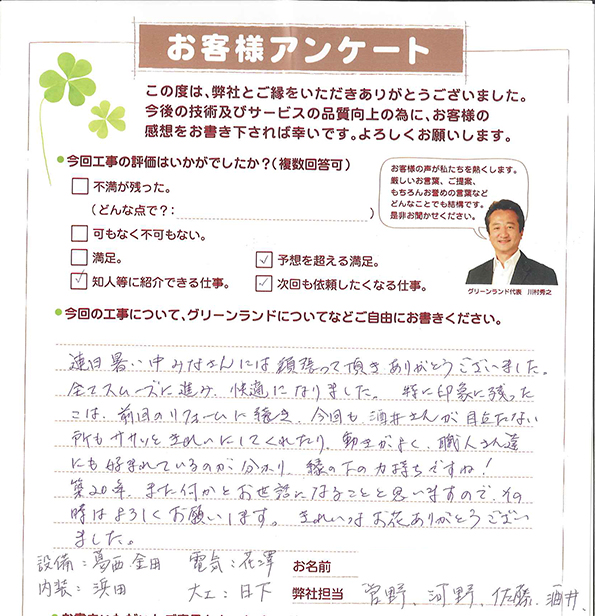 お客様アンケート
この度は、弊社とご縁をいただきありがとうございました。
今後の技術及びサービスの品質向上の為に、お客様の
感想をお書き下されば幸いです。よろしくお願いします。
•今回工事の評価はいかがでしたか?(複数回答可)
不満が残った。
(どんな点で?: )
可もなく不可もない。
満足。
✓ 予想を超える満足。
✓ 知人等に紹介できる仕事。
✓ 次回も依頼したくなる仕事。
お客様の声が私たちを熱くします。
厳しいお言葉、ご提案、
もちろんお誉めの言葉など
どんなことでも結構です。
是非お聞かせください。
グリーンランド代表 川村秀之
•今回の工事について、グリーンランドについてなどご自由にお書きください。
連日暑い中みなさんには頑張って頂きありがとうございました。
全てスムーズに進み、快適になりました。 特に印象に残った
こは、前回のリフォームに続き、今回も酒井さんが目立たない
所もササッときれいにしてくれたり、動きがよく、職人さん達
にも好まれているのが分かり、縁の下の力持ちですね!
築20年、また何かとお世話になることと思いますので、その
時はよろしくお願いします。 きれいなお花ありがとうござい
ました。
設備:葛西、金田 電気:花澤
お名前
内装:浜田 大工:日下
弊社担当 菅野、河野、佐藤、酒井、